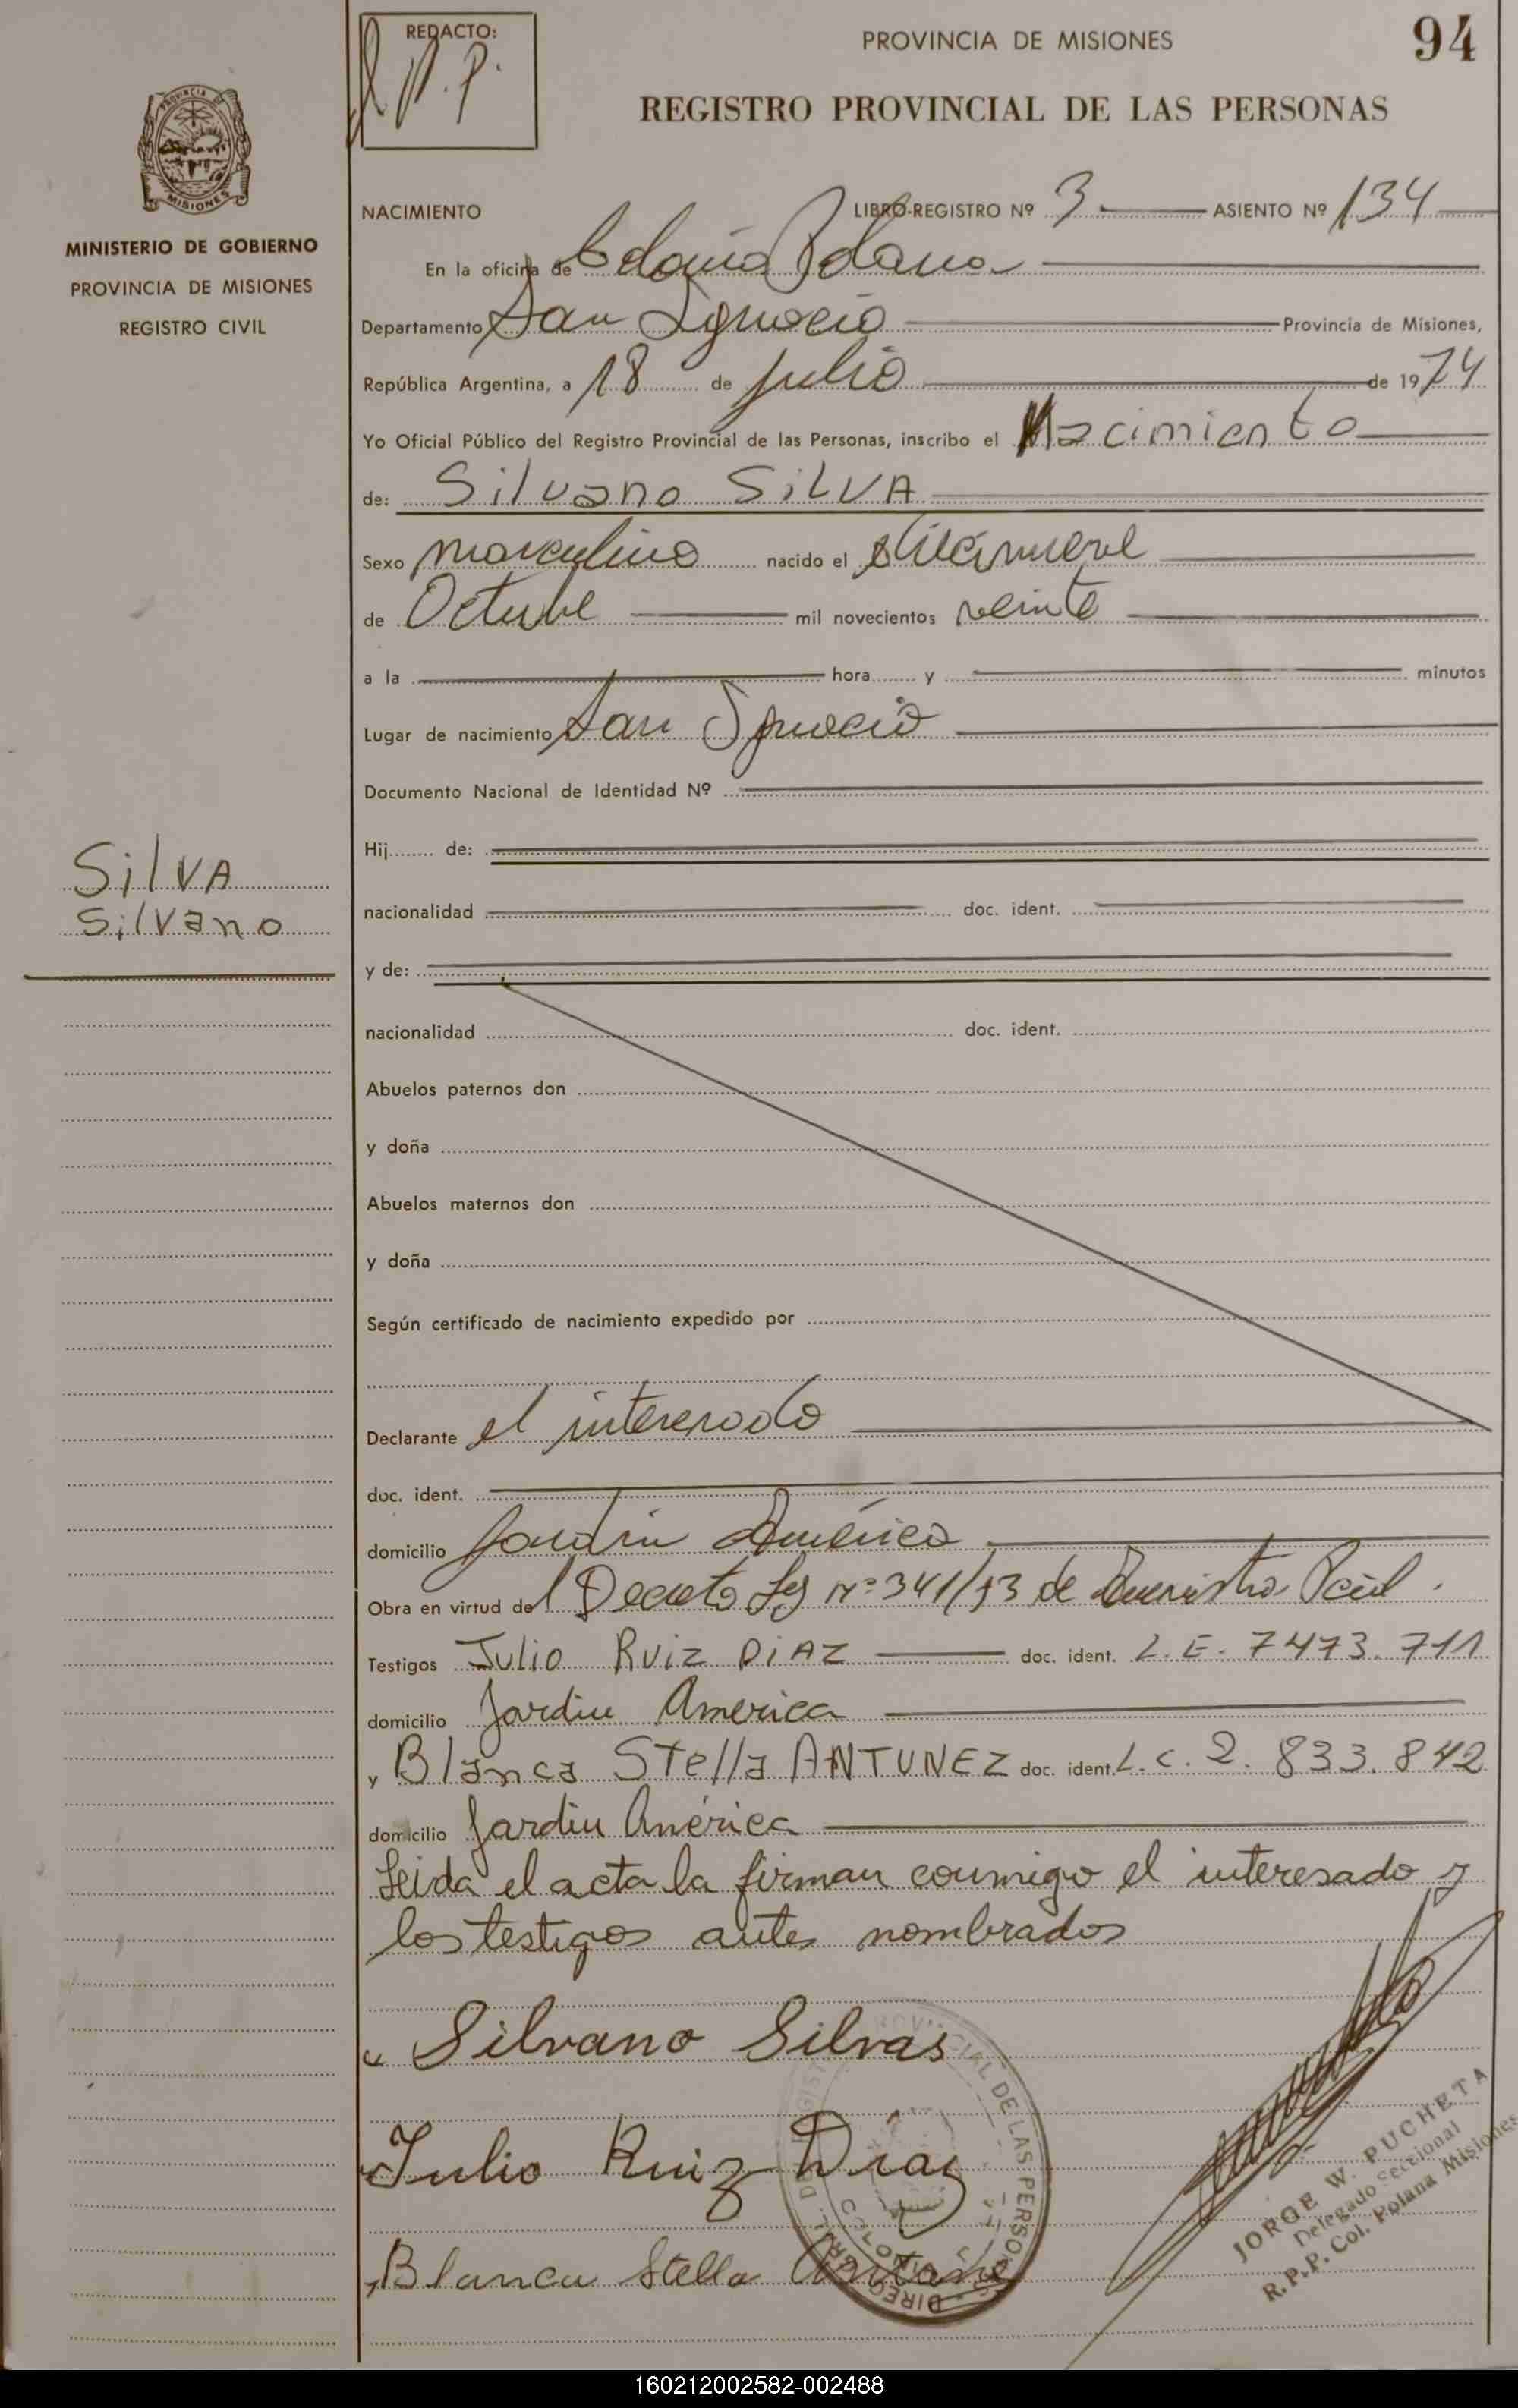 REDACTO:
PROVINCIA DE MISIONES
94
REGISTRO PROVINCIAL DE LAS PERSONAS
MISIONES
MINISTERIO DE GOBIERNO
PROVINCIA DE MISIONES
REGISTRO CIVIL
NACIMIENTO LIBRO-REGISTRO Nº 3 ASIENTO Nº 134
En la oficina de Colonia Polana
Departamento San Ignacio Provincia de Misiones,
República Argentina, a 18 de julio de 1974
Yo Oficial Público del Registro Provincial de las Personas, inscribo el Nacimiento
de: Silvano SILVA
Sexo masculino nacido el diecinueve
de Octubre mil novecientos veinte
a la hora y minutos
Lugar de nacimiento San Ignacio
Documento Nacional de Identidad Nº
Hij de:
SilVA
Silvano
nacionalidad doc. ident.
y de:
nacionalidad doc. ident.
Abuelos paternos don
y doña
Abuelos maternos don
y doña
Según certificado de nacimiento expedido por
Declarante el interesado
doc. ident.
domicilio Jardín América
Obra en virtud del Decreto Ley Nº 341/73 de
Testigos Julio Ruiz DiAZ doc. ident. L.E. 7473.711
domicilio Jardin America
y Blanca Stella ANTUNEZ doc. ident. L.C. 2.833.842
domicilio Jardin América
Leida el acta la firman conmigo el interesado y
los testigos antes nombrados
Silvano Silvas
Julio Ruiz Diaz
Blanca Stella
JORGE W. PUCHETA
Delegado Seccional
R.P.P. Col. Polana Misiones
160212002582-002488